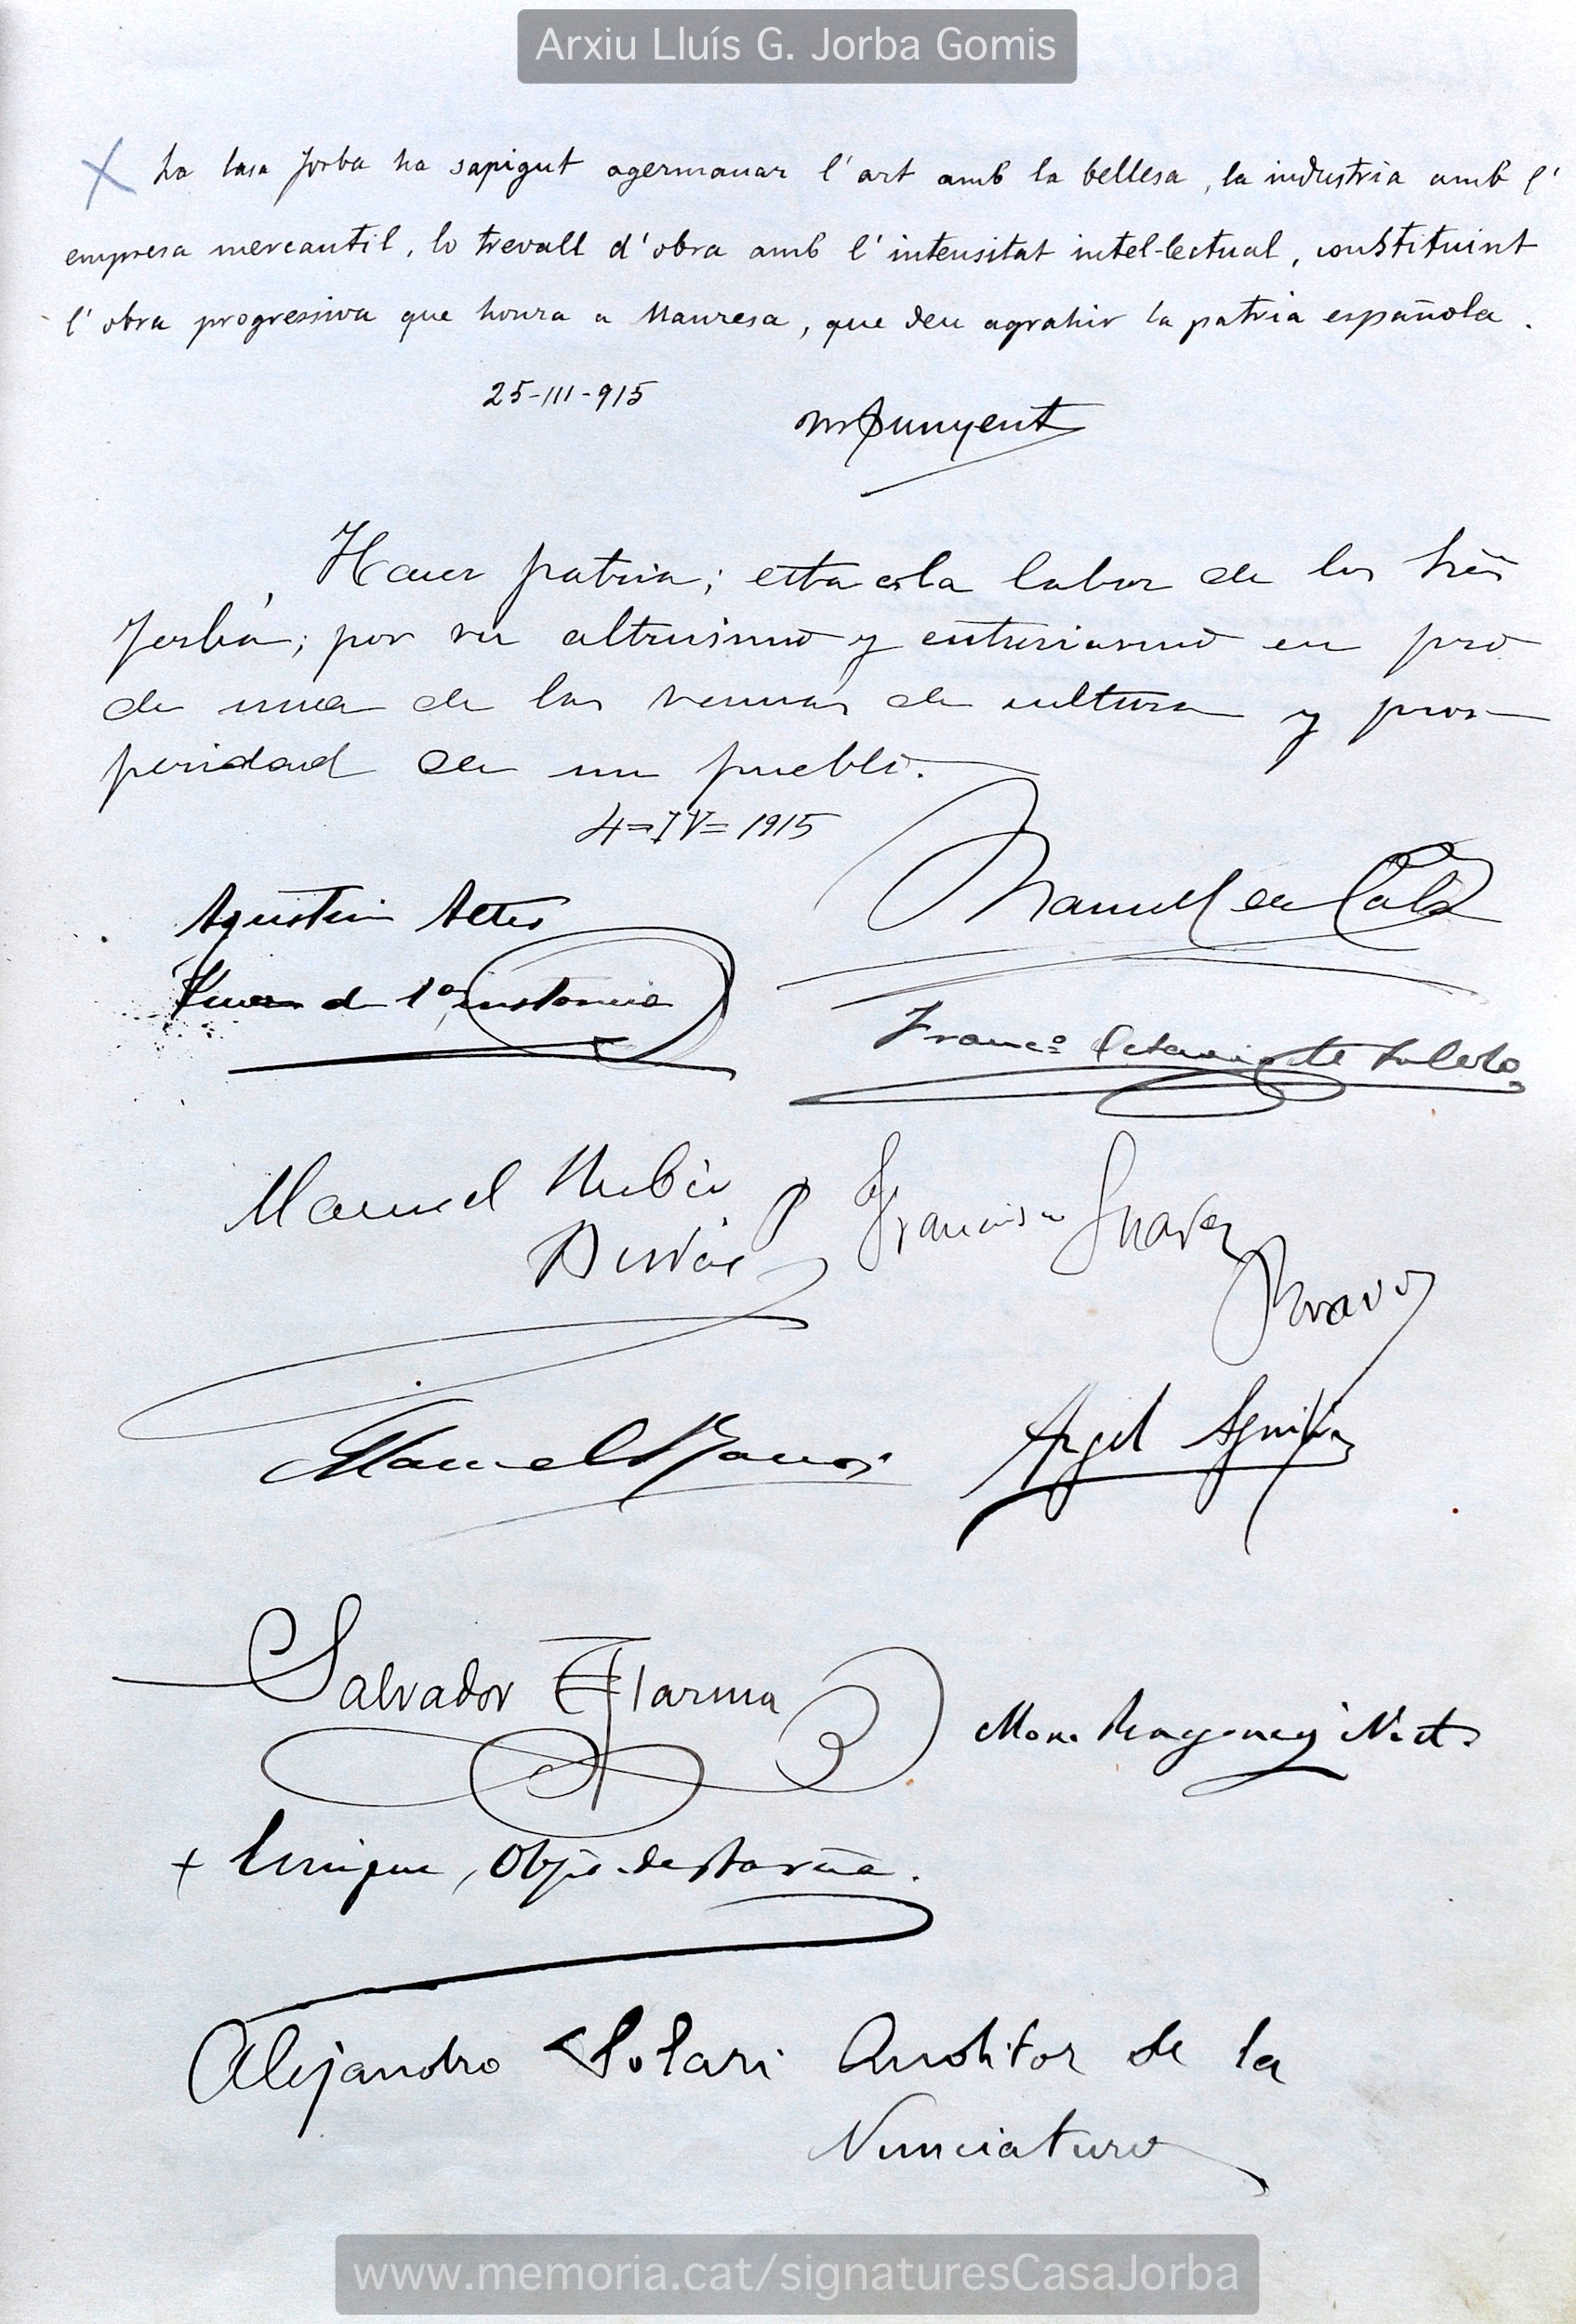 Arxiu Lluís G. Jorba Gomis
La Casa Jorba ha sapigut agermanar l'art amb la bellesa, la industria amb l'
empresa mercantil, lo trevall d'obra amb l'intensitat intel-lectual, constituint
l'obra progressiva que honra a Manresa, que deu agrahir la patria española.
25-III-915
M Punyent
Hacer patria; esta es la labor de los Sres
Jorba; por su altruismo y entusiasmo en pro
de una de las ramas de cultura y pros-
peridad de un pueblo.
4=IV=1915
Agustin Altes
Manuel de
Juez de 1ª instancia
Francº Octavio de Toledo
Manuel Rubio
Francisco Suarez
Bravo
Manuel Ramos
Angel
Salvador
Mons. Ragonesi Nunt.
+ Enrique, Obpo. de
Alejandro Solari Auditor de la
Nunciatura
www.memoria.cat/signaturesCasaJorba